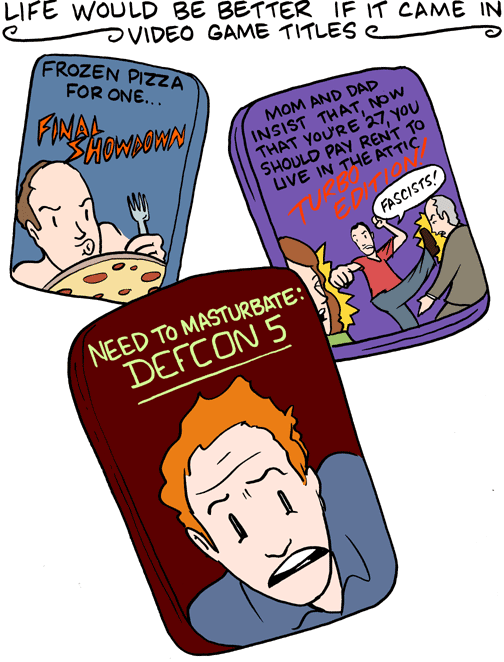 LIFE WOULD BE BETTER IF IT CAME IN
VIDEO GAME TITLES
FROZEN PIZZA
FOR ONE...
FINAL
SHOWDOWN
MOM AND DAD
INSIST THAT, NOW
THAT YOU'RE 27, YOU
SHOULD PAY RENT TO
LIVE IN THE ATTIC
TURBO
EDITION!
FASCISTS!
NEED TO MASTURBATE:
DEFCON 5